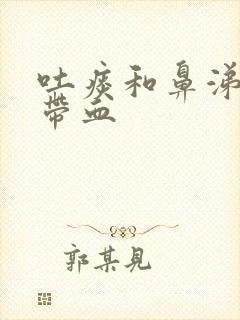 吐痰和鼻涕
带血
郭某见